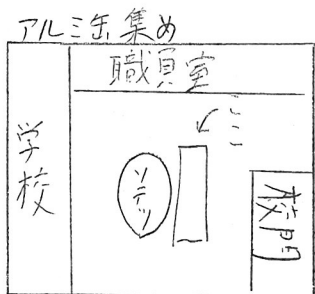 アルミ缶集め
職員室
ここ
学校
ソテツ
校門